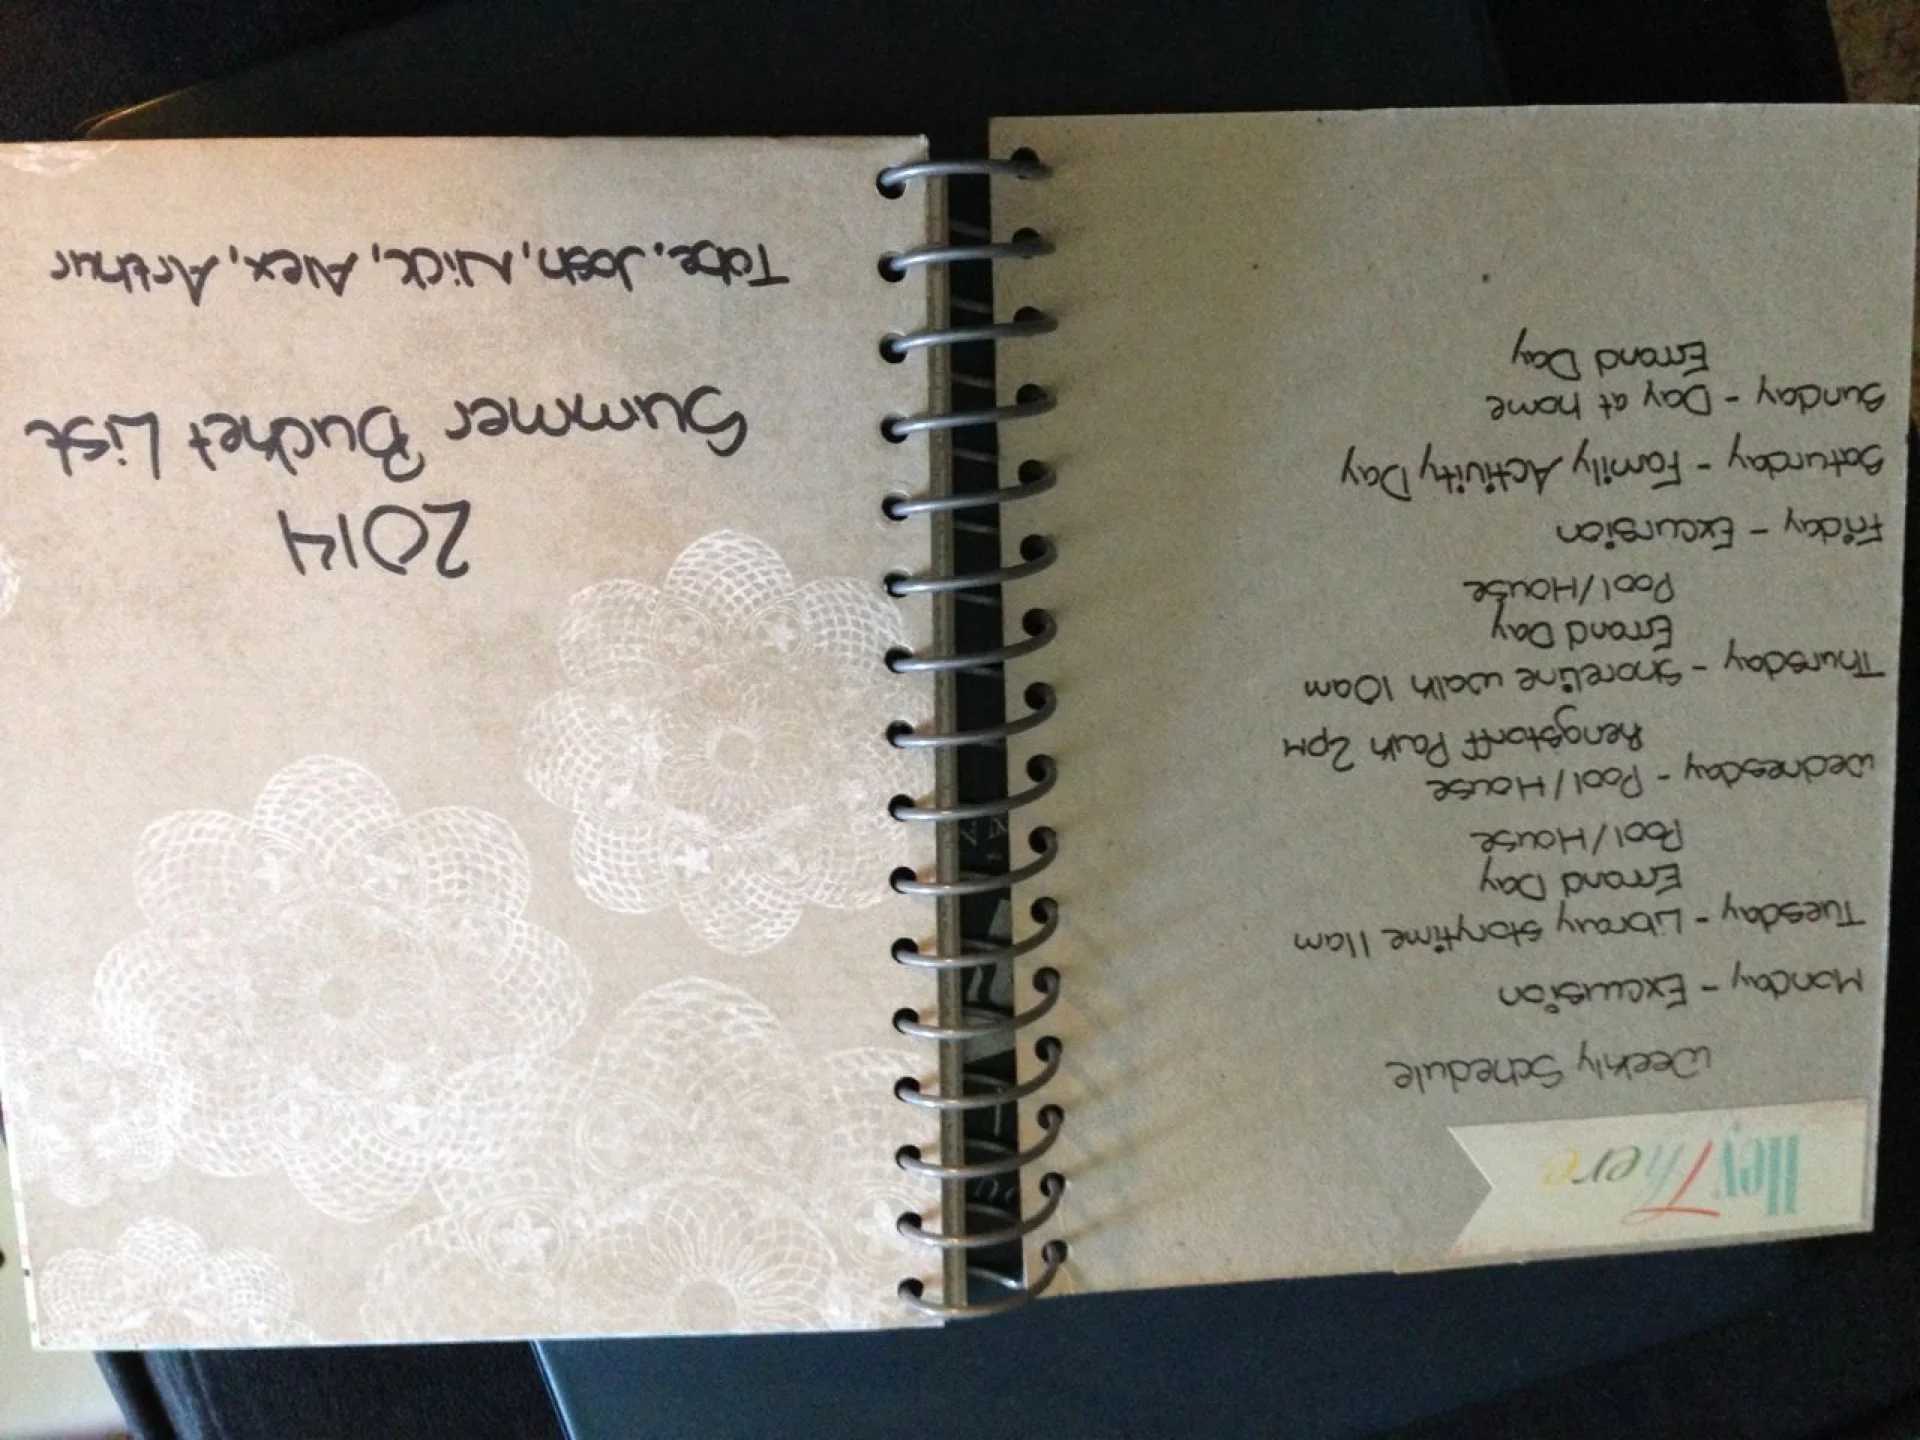 Hey There
Weekly Schedule
Monday - Excursion
Tuesday - Library storytime 11am
Errand Day
Pool/House
Wednesday - Pool/House
Rengstorff Park 2pm
Thursday - Shoreline walk 10am
Errand Day
Pool/House
Friday - Excursion
Saturday - Family Activity Day
Sunday - Day at home
Errand Day
2014
Summer Bucket List
Tabe, Josh, Nick, Alex, Arthur